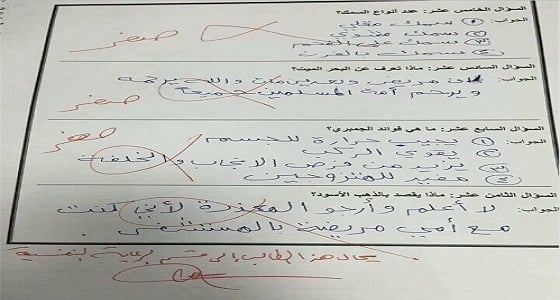 السؤال الخامس عشر: عدد أنواع السمك؟
الجواب: ① سمك مقلي
② سمك مشوي
③ سمك على الفحم
④ سمك بالفرن
صفر
السؤال السادس عشر: ماذا تعرف عن البحر الميت؟
الجواب: كان مريض وبعدين مات والله يرحمه
ويرحم أمة المسلمين جميعاً
صفر
السؤال السابع عشر: ما هي فوائد الجمبري؟
الجواب: ① يجيب حرارة للجسم
② يقوي الركب
③ يزيد من فرص الانجاب والخلفات
④ مفيد للمتزوجين
صفر
السؤال الثامن عشر: ماذا يقصد بالذهب الأسود؟
الجواب: لا أعلم وأرجو المعذرة لأني كنت
مع أمي مريضة بالمستشفى.
يحال هذا الطالب إلى قسم الرعاية النفسية